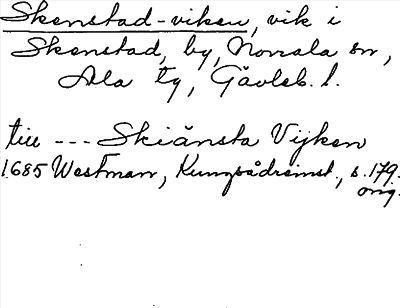 Skenstad-viken, vik i
Skenstad, by, Norrala sn,
Ala tg, Gävleb. l.
till --- Skiänsta Vijken
1685 Westman, Kungsådreinst., s. 179.
orig.